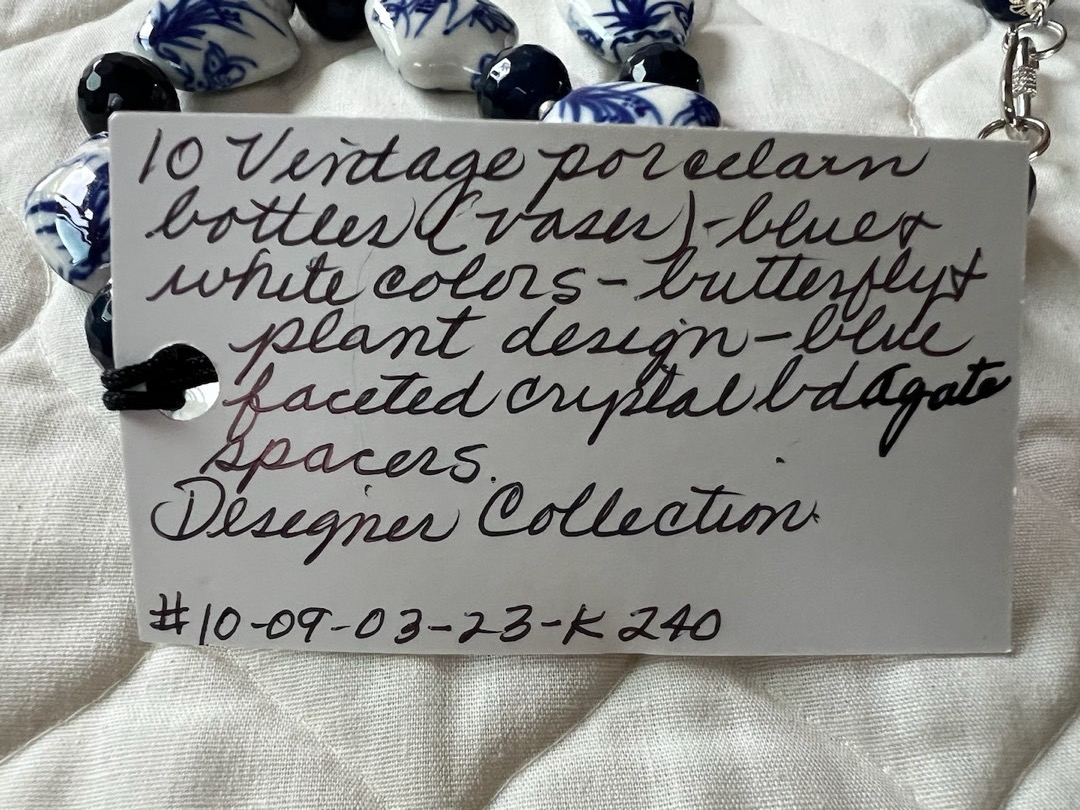 10 Vintage porcelain
bottles (vases) - blue &
white colors - butterfly &
plant design - blue
faceted crystal bd agate
spacers.
Designer Collection
#10-09-03-23-K 240